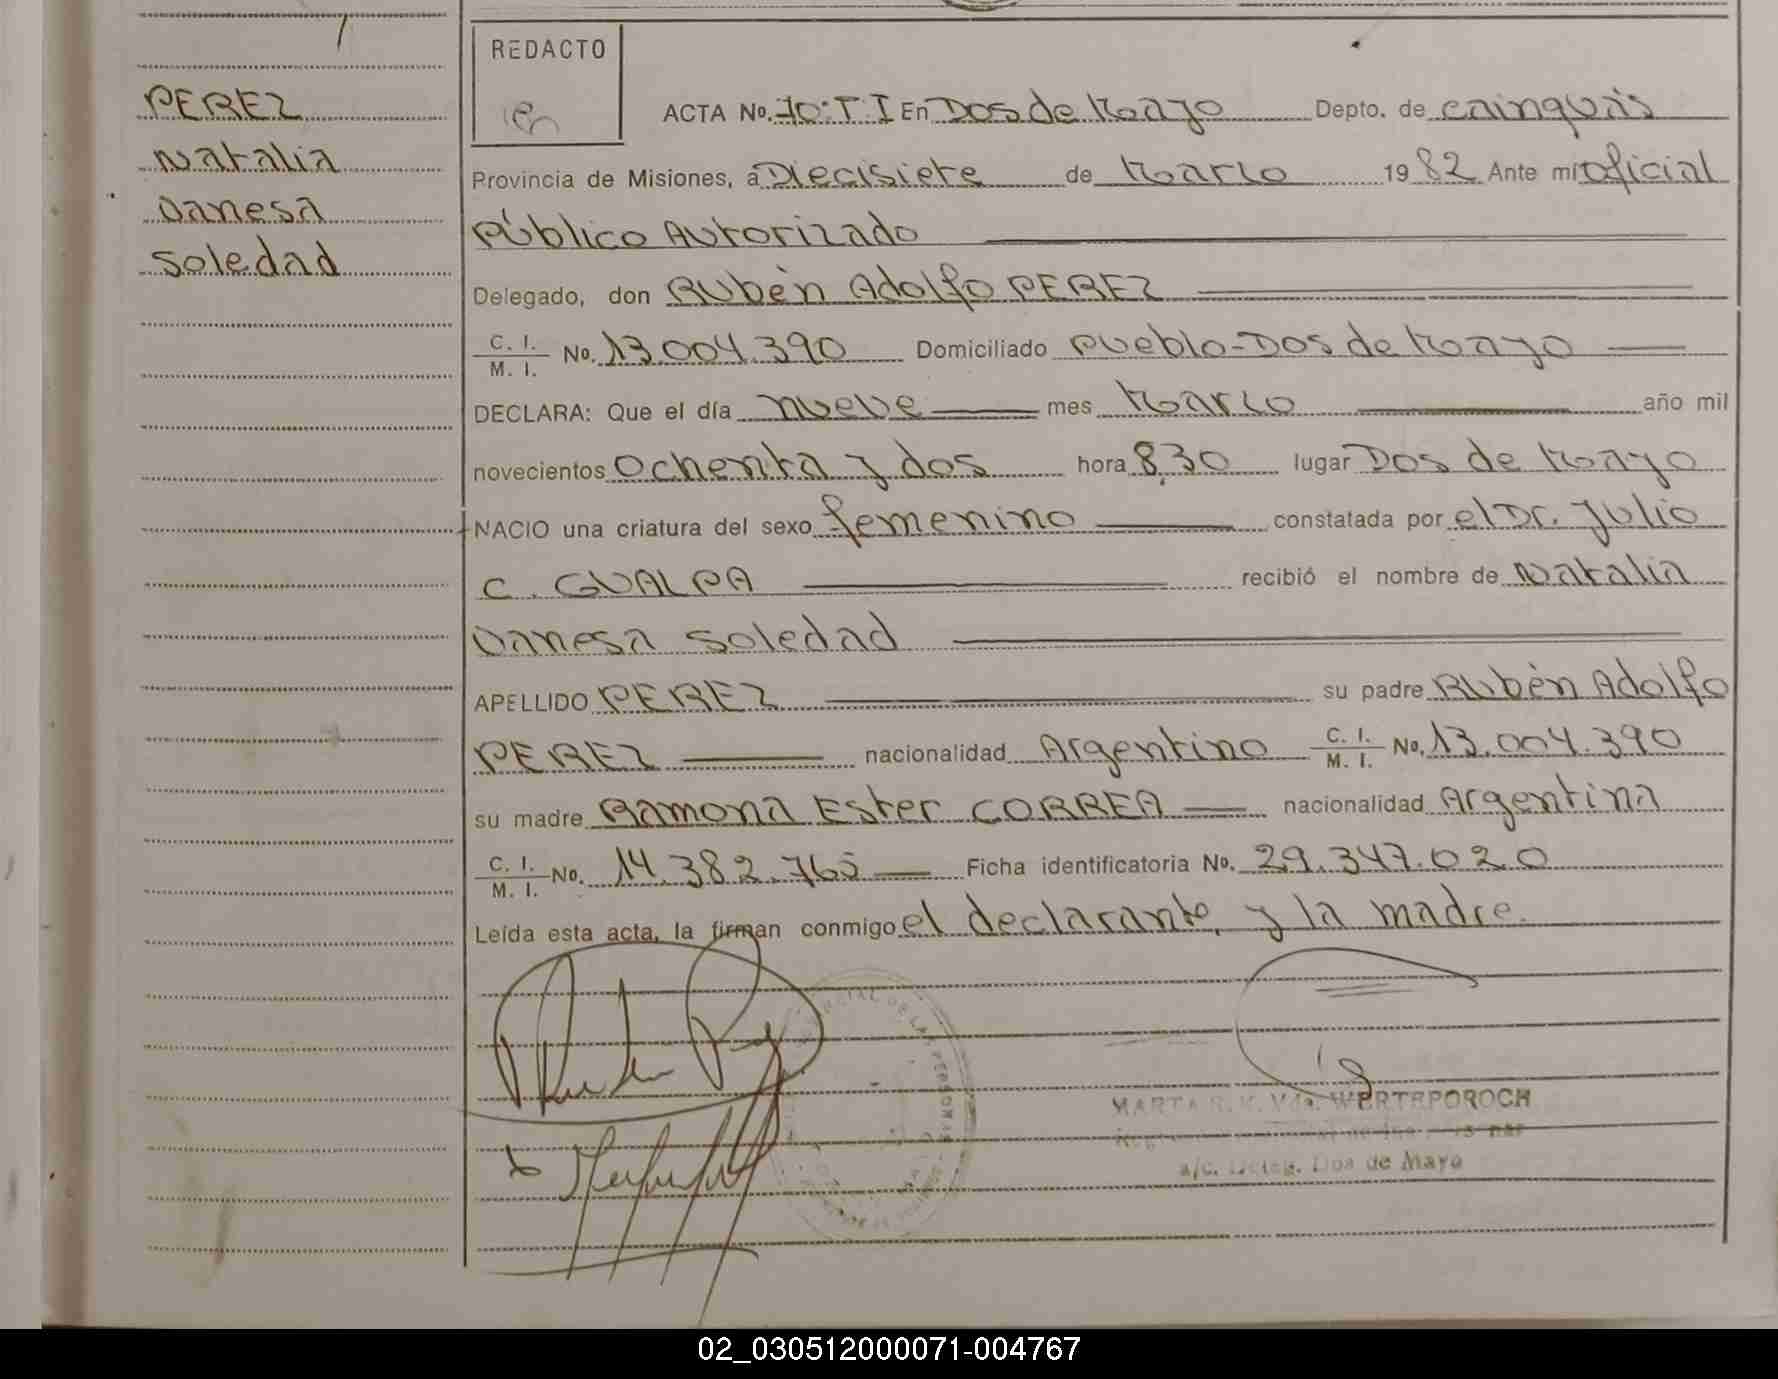 PEREZ
Natalia
Vanesa
Soledad
REDACTO
ACTA No. 70: T I En Dos de Mayo Depto. de Cainguás
Provincia de Misiones, a Diecisiete de Marzo 1982 Ante mi Oficial
Público Autorizado
Delegado, don Rubén Adolfo PEREZ
C. I. / M. I. No. 13.004.390 Domiciliado Pueblo-Dos de Mayo
DECLARA: Que el día nueve mes Marzo año mil
novecientos Ochenta y dos hora 8,30 lugar Dos de Mayo
NACIO una criatura del sexo femenino constatada por el Dr. Julio
C. GUALPA recibió el nombre de Natalia
Vanesa Soledad
APELLIDO PEREZ su padre Rubén Adolfo
PEREZ nacionalidad Argentino C. I. / M. I. No. 13.004.390
su madre Ramona Ester CORREA nacionalidad Argentina
C. I. / M. I. No. 14.382.765 Ficha identificatoria No. 29.347.020
Leída esta acta, la firman conmigo el declarante, y la madre.
MARTA Vda. WERTEPOROCH
a/c. Deleg. Dos de Mayo
02_030512000071-004767